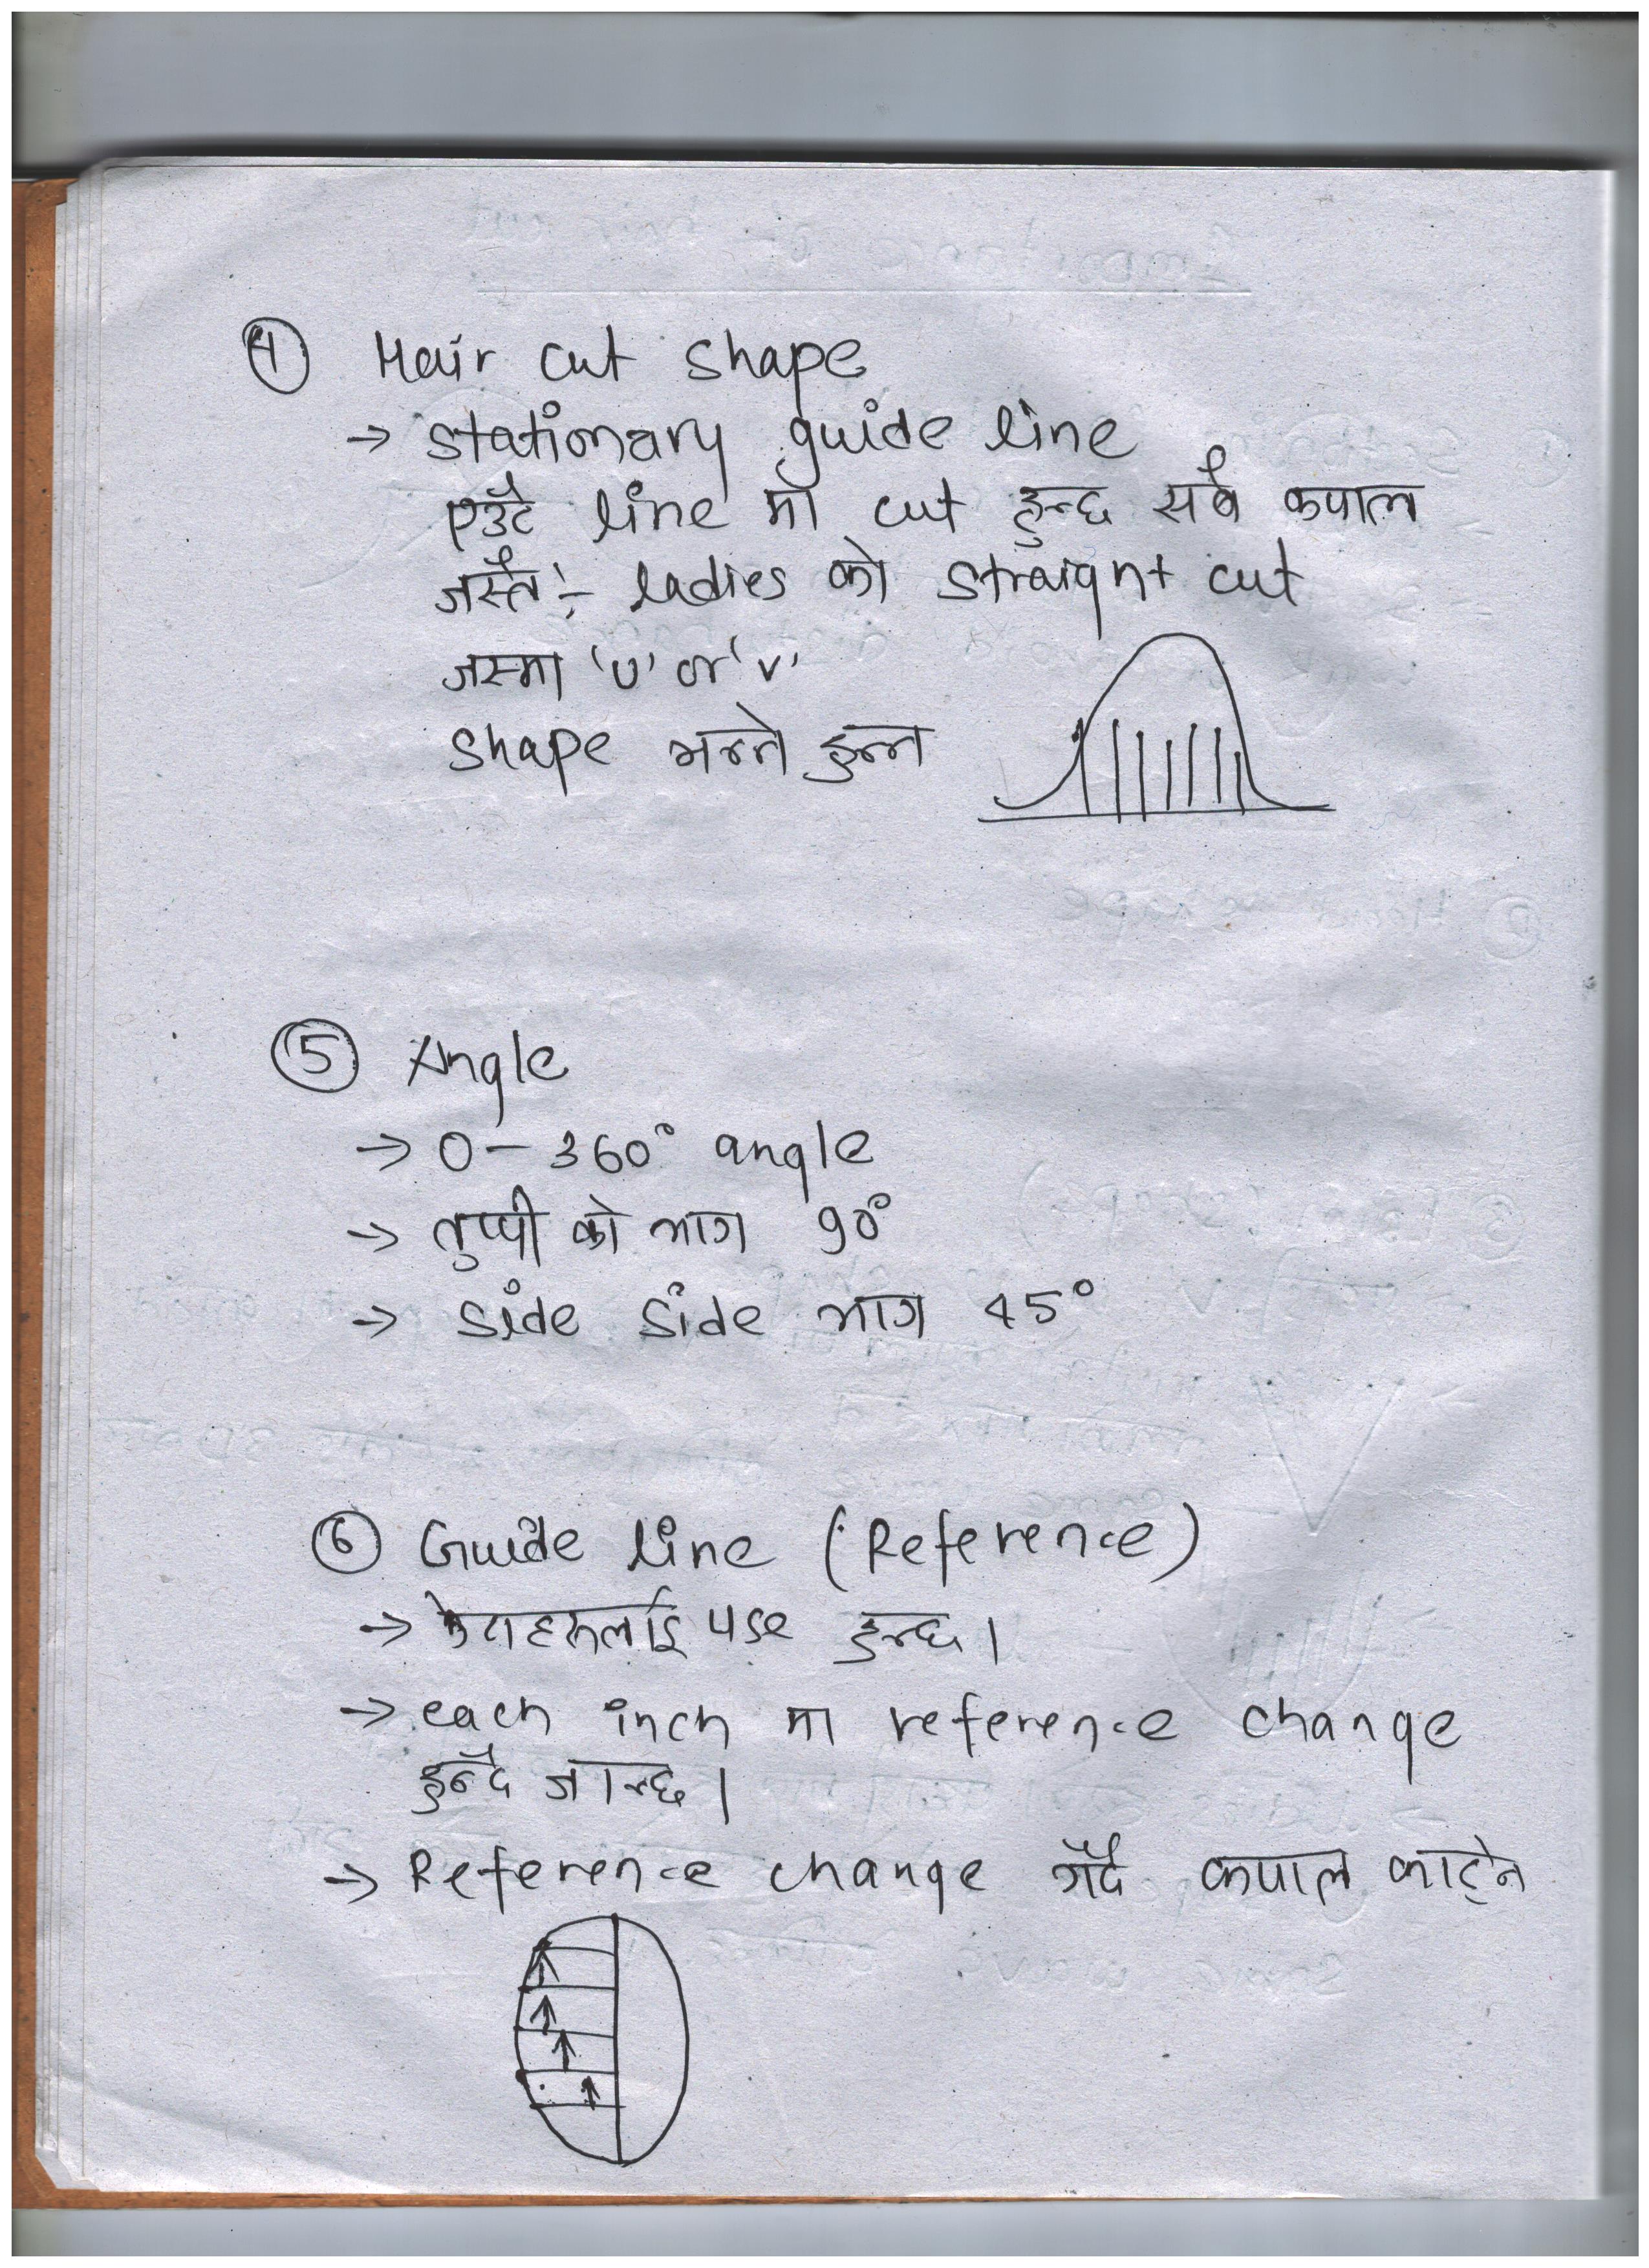 ④ Hair cut shape
→ stationary guide line
एउटै line मा cut हुन्छ सबै कपाल
जस्तै:- ladies को straight cut
जस्मा 'U' or 'V'
shape भन्ने हुन्न
⑤ Angle
→ 0 – 360° angle
→ तुप्पी को भाग 90°
→ side side भाग 45°
⑥ Guide line (Reference)
→ केटाहरूलाई use हुन्छ।
→ each inch मा reference change
हुन्दै जान्छ।
→ Reference change गर्दै कपाल काट्ने